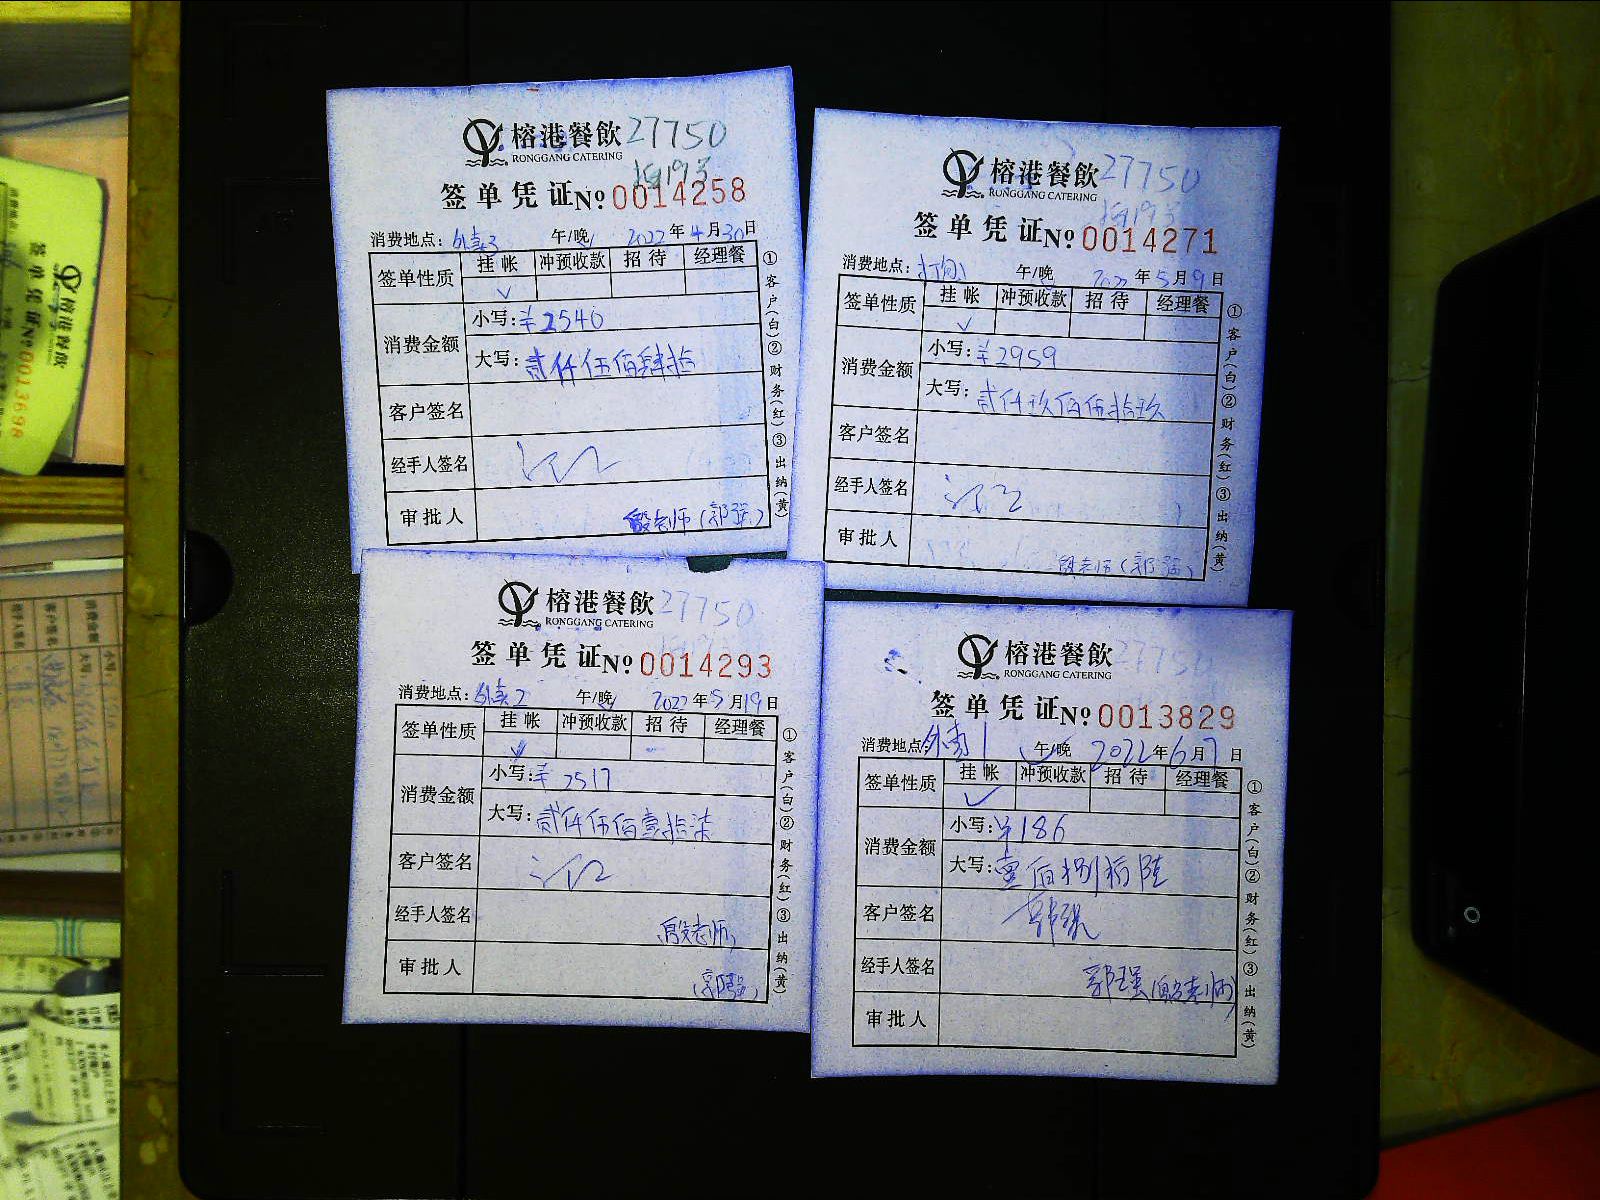 榕港餐飲 27750
RONGGANG CATERING
签单凭证 No: 0014258
消费地点: 外卖3 午/晚 2022年4月30日
签单性质 挂帐 冲预收款 招待 经理餐
✓
消费金额 小写: ¥2540
大写: 贰仟伍佰肆拾
客户签名
经手人签名
审批人 殷老师(郭强)
①客户(白)②财务(红)③出纳(黄)
榕港餐飲 27750
RONGGANG CATERING
签单凭证 No: 0014271
消费地点: 午/晚 2022年5月9日
签单性质 挂帐 冲预收款 招待 经理餐
✓
消费金额 小写: ¥2959
大写: 贰仟玖佰伍拾玖
客户签名
经手人签名
审批人 殷老师(郭强)
①客户(白)②财务(红)③出纳(黄)
榕港餐飲 27750
RONGGANG CATERING
签单凭证 No: 0014293
消费地点: 外卖2 午/晚 2022年5月19日
签单性质 挂帐 冲预收款 招待 经理餐
✓
消费金额 小写: ¥2517
大写: 贰仟伍佰壹拾柒
客户签名
经手人签名 殷老师
审批人 (郭强)
①客户(白)②财务(红)③出纳(黄)
榕港餐飲 27750
RONGGANG CATERING
签单凭证 No: 0013829
消费地点: 外卖1 午/晚 2022年6月7日
签单性质 挂帐 冲预收款 招待 经理餐
✓
消费金额 小写: ¥186
大写: 壹佰捌拾陆
客户签名 郭强
经手人签名 郭强(殷老师)
审批人
①客户(白)②财务(红)③出纳(黄)
榕港餐飲
签单凭证 No 0013698